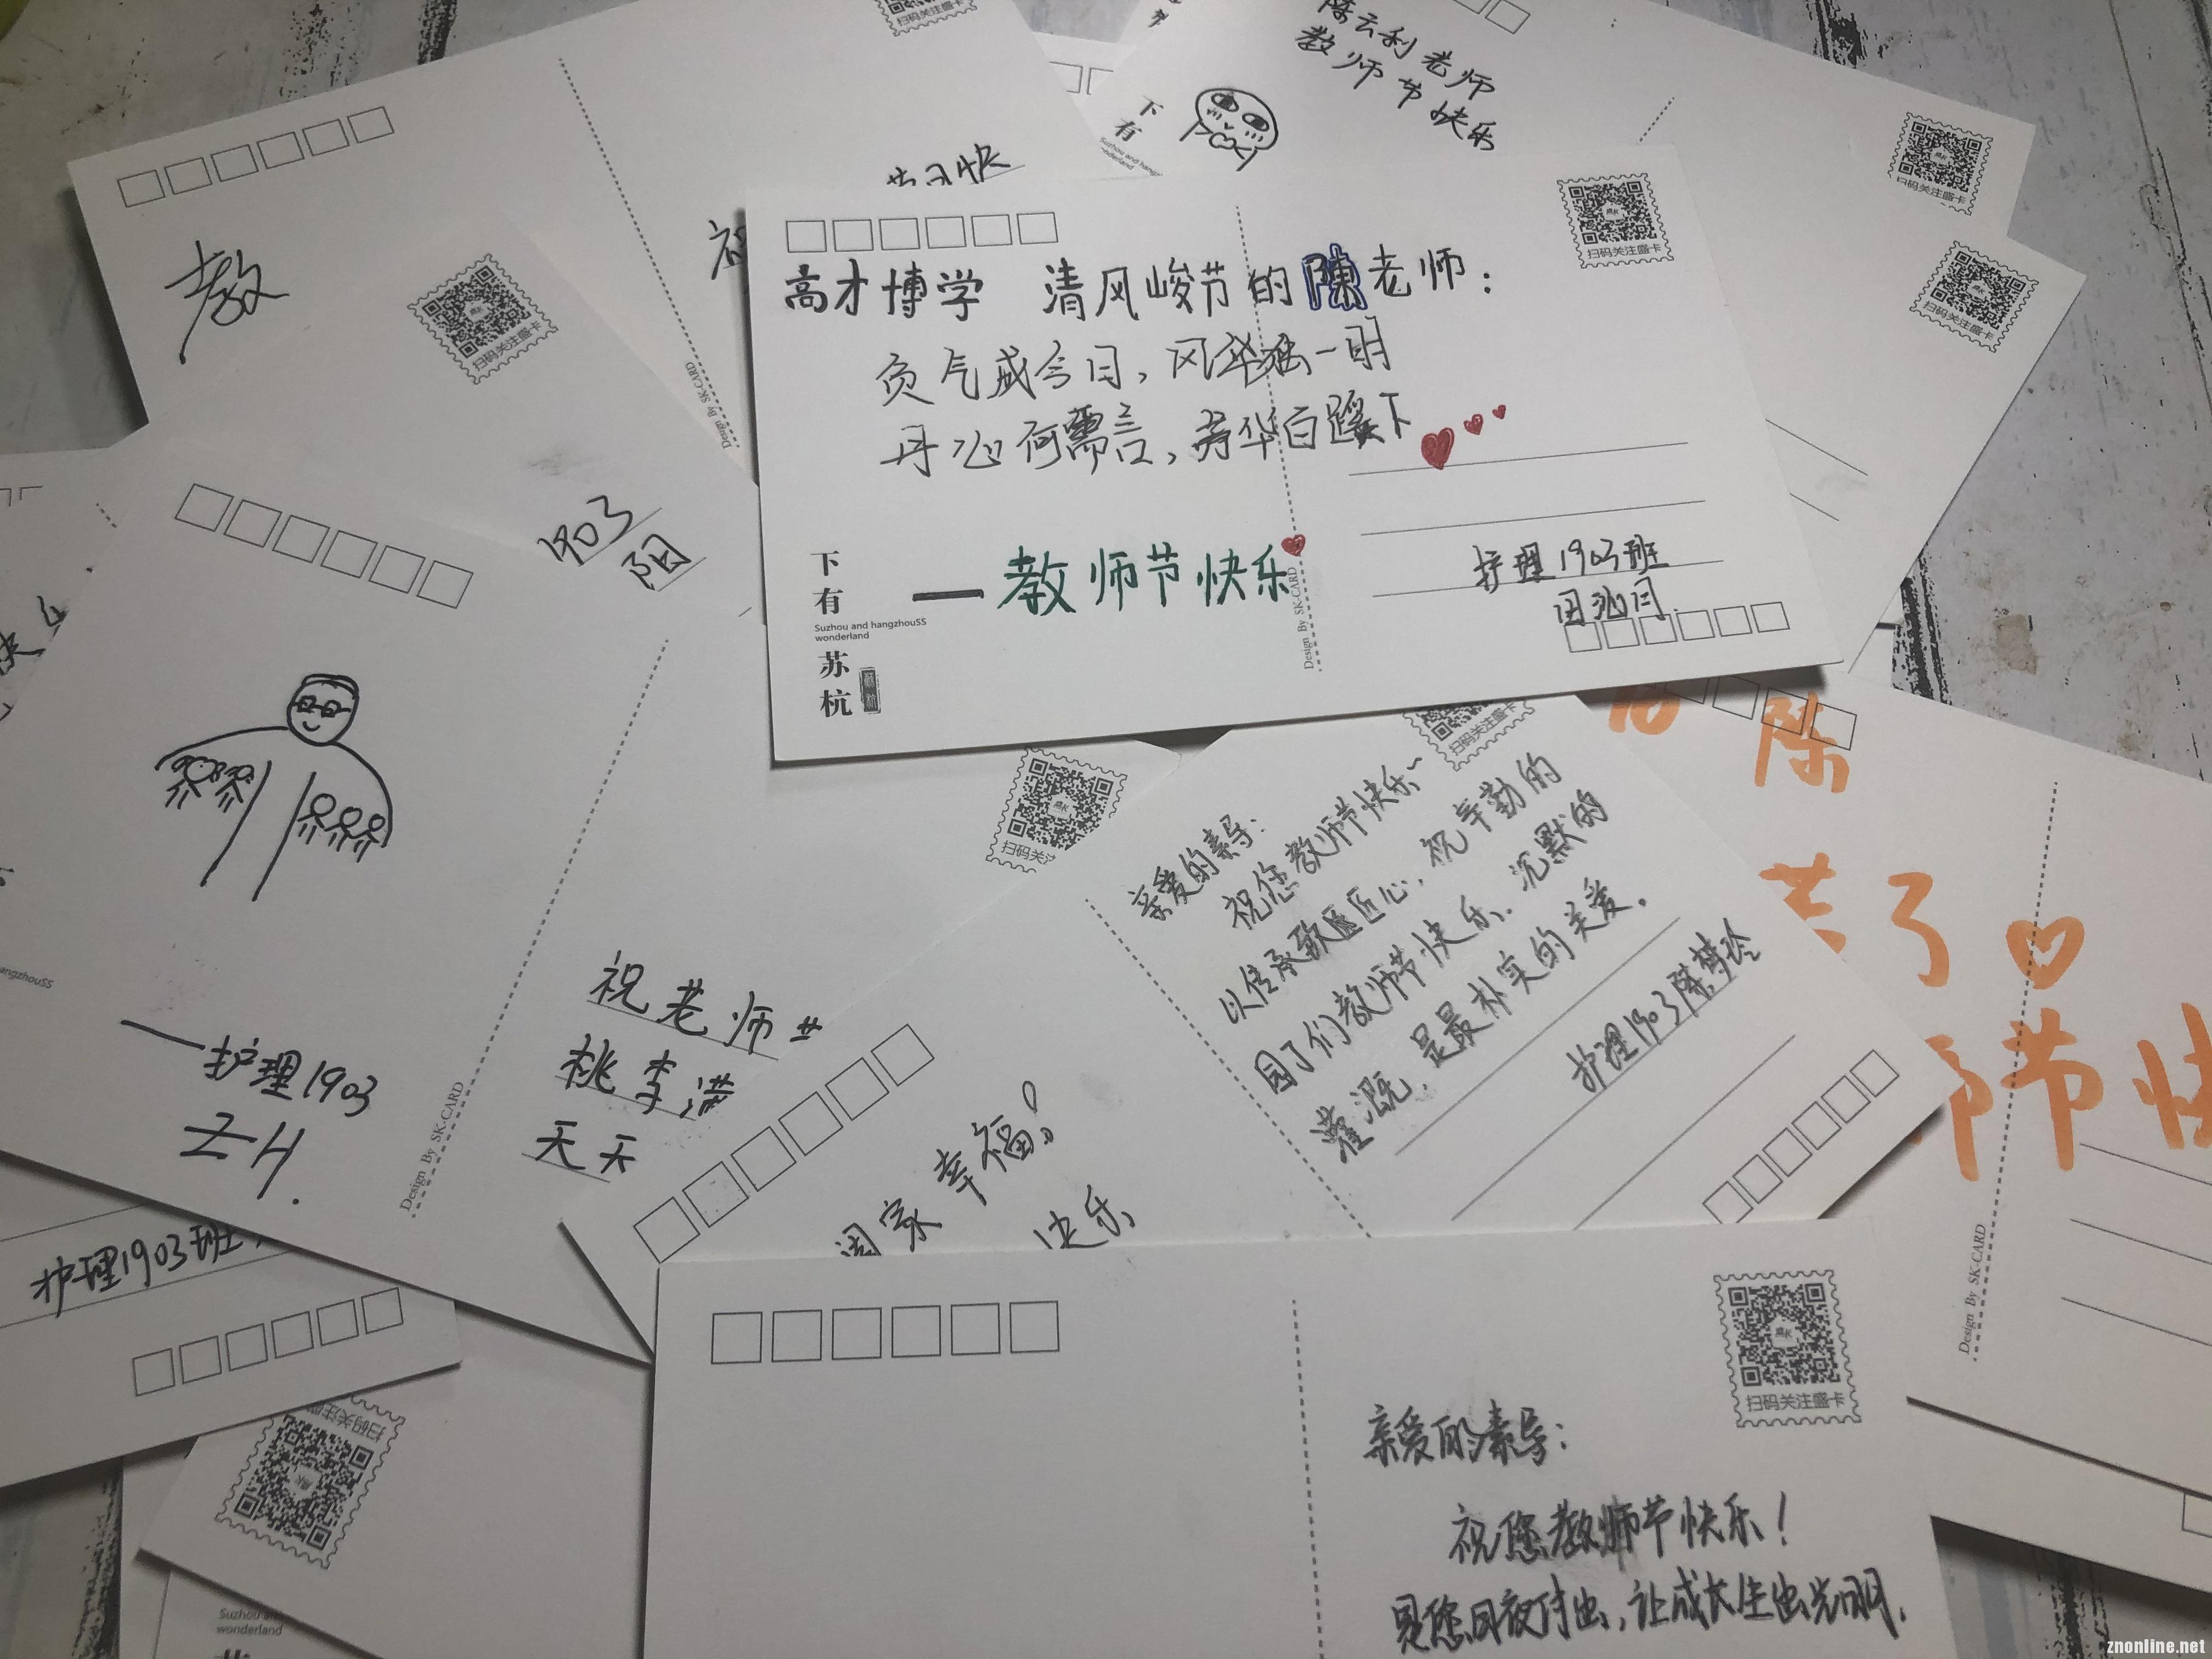 陈云利老师
教师节快乐
下
有
扫码关注盛卡
教
扫码关注盛卡
Design By SK-CARD
1903
阳
扫码关注盛卡
高才博学 清风峻节的陳老师：
负气盛今日，风华独一明
丹心何需言，芳华自蹊下
—教师节快乐
护理1903班
下
有
Suzhou and hangzhouSS
wonderland
苏
杭
Design By SK-CARD
扫码关注盛卡
—护理1903
ZH.
Design By SK-CARD
祝老师
桃李满
天天
护理1903班
扫码关注盛卡
亲爱的素导：
祝您教师节快乐~
以传承致匠心，祝辛勤的
园丁们教师节快乐，沉默的
灌溉，是最朴实的关爱。
护理1903陈梦玲
幸福！
快乐
陈
了
节快
Design By SK-CARD
扫码关注盛卡
亲爱的素导：
祝您教师节快乐！
是您日夜付出，让成长生出光明，
扫码关注盛卡
Suzhou and
wonderland
znonline.net